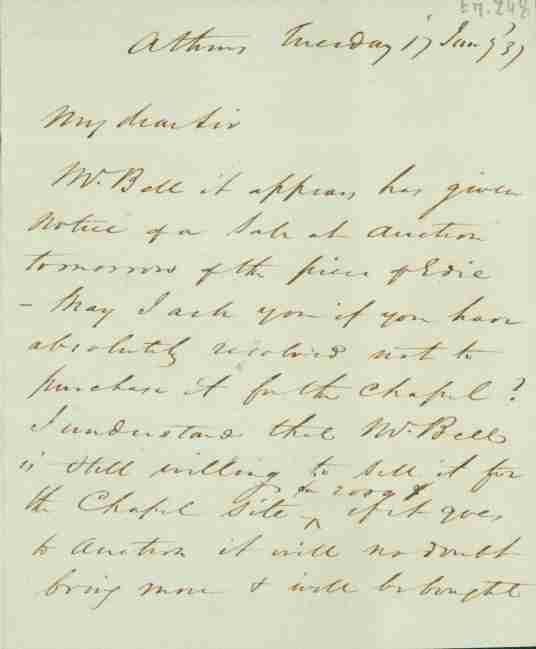 E7.248
Athens Tuesday 17 Jany 37
My dear Sir
Mr. Bell it appears has given
notice of a Sale at Auction
tomorrow of the piece of
– May I ask you if you have
absolutely resolved not to
purchase it for the Chapel?
I understand that Mr. Bell
is still willing to sell it for
for
the Chapel site if it goes
to Auction it will no doubt
bring more & will be bought